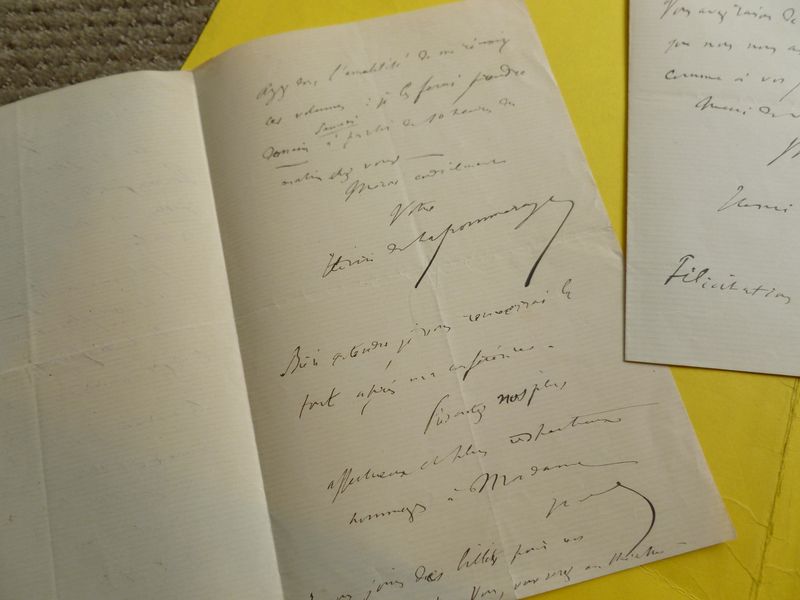 Ayez donc l'amabilité de me réunir
ces volumes : je les ferai prendre
demain samedi à partir de 10 heures du
matin chez vous
Merci cordialement
Votre
Henri de Lapommeraye
Bien entendu, je vous renverrai le
tout après ma conférence.
Présentez nos plus
affectueux et plus respectueux
hommages à Madame
Je vous joins des billets pour
Vous avez raison de
que nous nous
comme à vos
Merci de
Henri
Félicitations